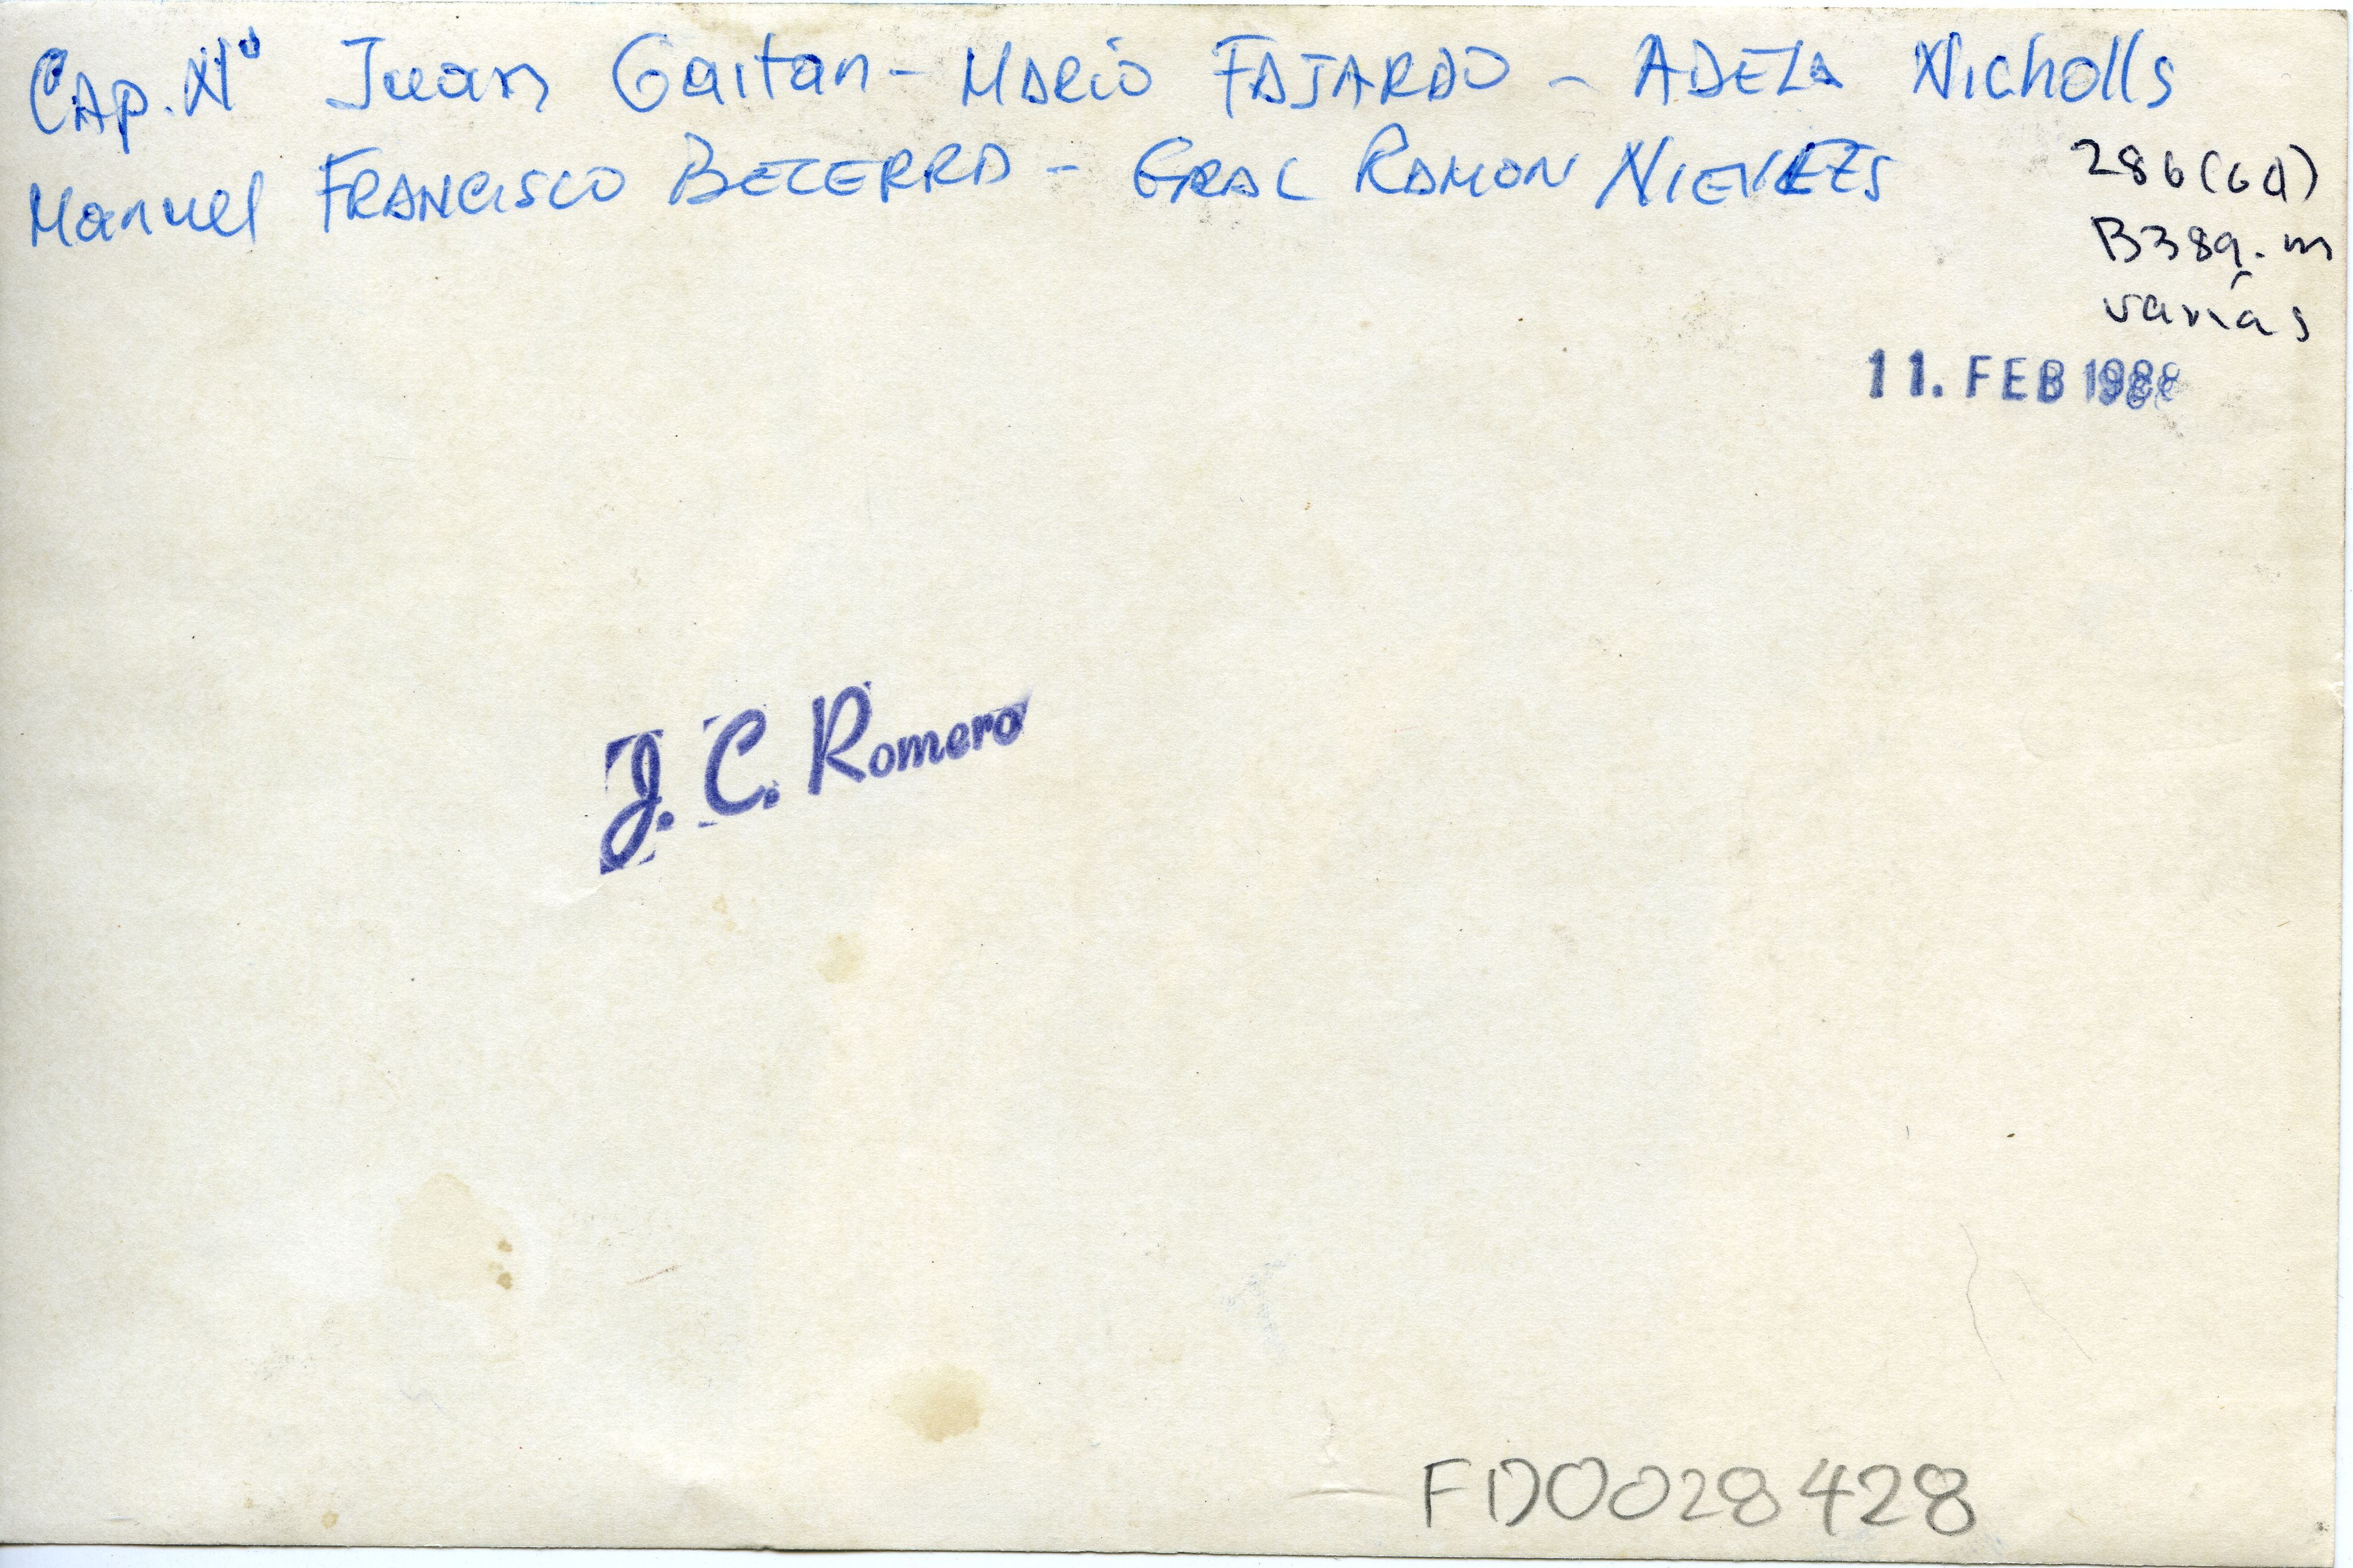 CAp. Nº Juan Gaitan - MARiO FAJARDO - ADELA Nicholls
Manuel FRANCISCO BECERRA - GRAL RAMON NIEVES
286(6d)
B389.m
varias
11. FEB 1988
J. C. Romero
FD0028428